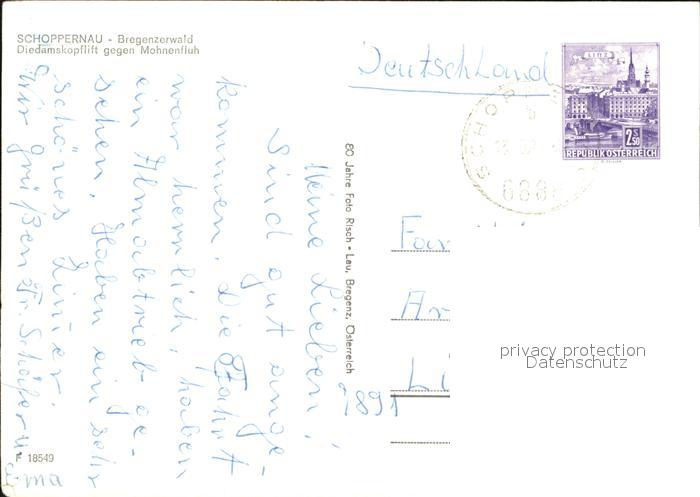 SCHOPPERNAU - Bregenzerwald
Diedamskopflift gegen Mohnenfluh
Meine Lieben!
Sind gut ange-
kommen. Die Fahrt
war herrlich, haben
ein Almabtrieb ge-
sehen. Haben ein sehr
schönes Zimmer.
Wir grüßen Fr. Schäfer u.
F 18549
80 Jahre Foto Risch - Lau, Bregenz, Österreich
Deutschland
LINZ
2S50
REPUBLIK ÖSTERREICH
SCHO
Fa
Ar
Li
891
privacy protection
Datenschutz